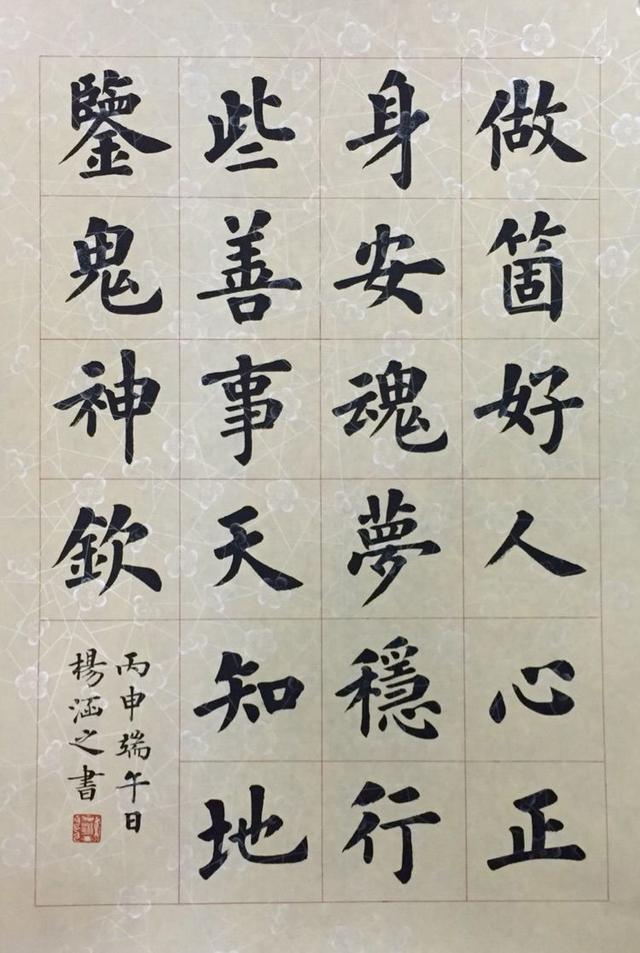 做箇好人心正
身安魂夢穩行
些善事天知地
鑒鬼神欽
丙申端午日
楊涵之書